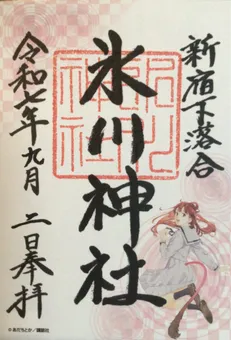 新宿下落合
氷川神社
令和七年九月二日奉拝
©あだちとか/講談社